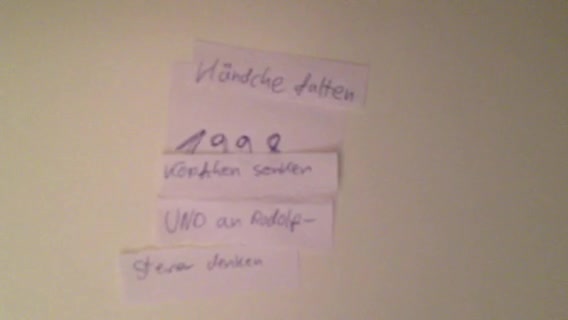 Händche falten
1998
Köpfchen senken
UND an Rudolp-
Steiner denken